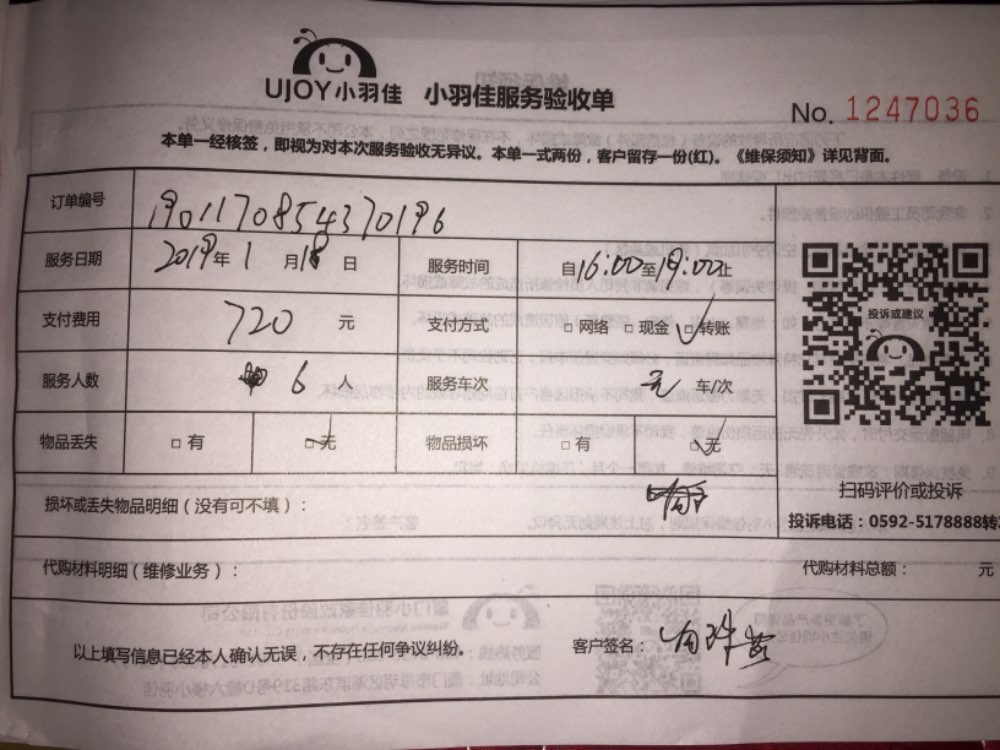 UJOY小羽佳 小羽佳服务验收单
No. 1247036
本单一经核签，即视为对本次服务验收无异议。本单一式两份，客户留存一份(红)。《维保须知》详见背面。
订单编号 1901170854370196
服务日期 2019年1月18日 服务时间 自16:00至19:00止
支付费用 720元 支付方式 □网络 □现金 □转账
投诉或建议
服务人数 6人 服务车次 车/次
物品丢失 □有 □无 物品损坏 □有 □无
扫码评价或投诉
损坏或丢失物品明细（没有可不填）：
投诉电话：0592-5178888转
代购材料明细（维修业务）： 代购材料总额： 元
以上填写信息已经本人确认无误，不存在任何争议纠纷。 客户签名：